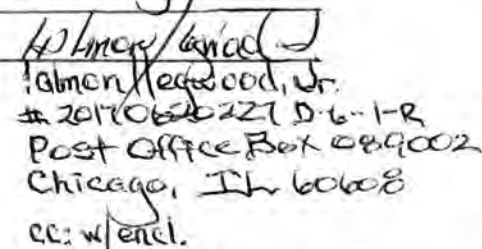 Talmon Hegwood, Jr.
# 20170620227 D-6-1-R
Post Office Box 089002
Chicago, IL 60608
cc: w/encl.